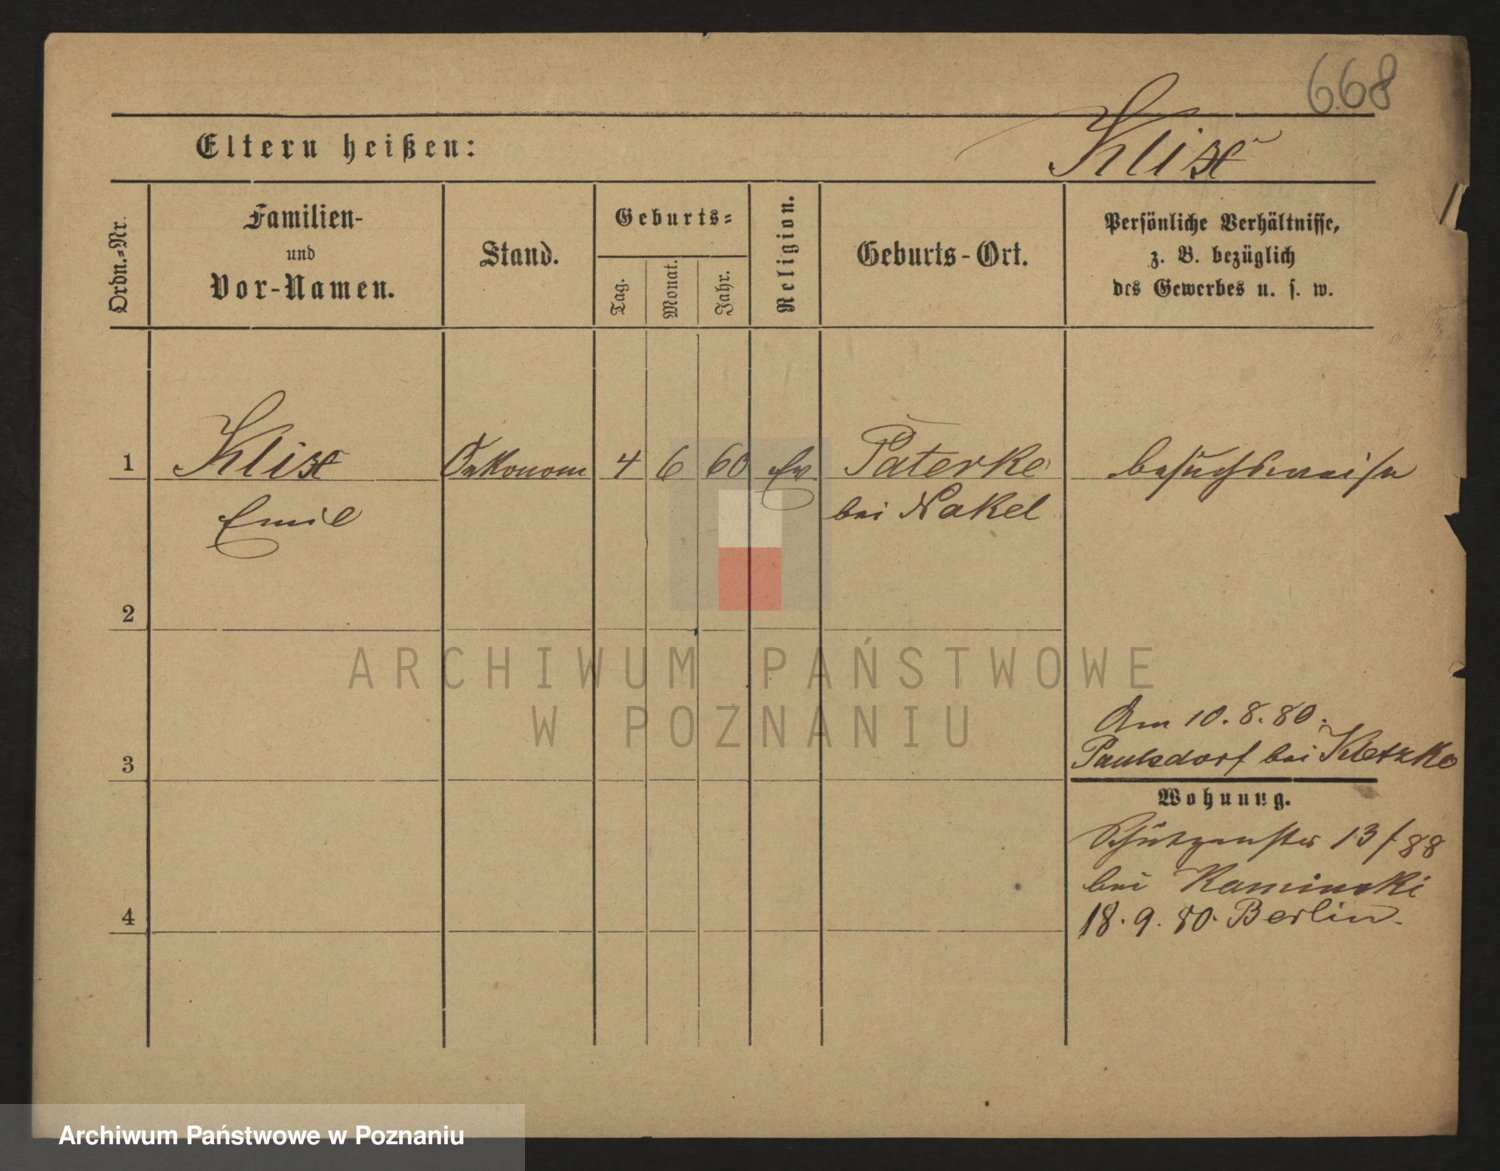 668
Eltern heißen:
Klix
1
Ordn.=Nr.
Familien-
und
Vor-Namen.
Stand.
Geburts=
Tag.
Monat.
Jahr.
Religion.
Geburts-Ort.
Persönliche Verhältnisse,
z. B. bezüglich
des Gewerbes u. s. w.
1 Klix Oekonom 4 6 60 Ev Paterke besuchsweise
Emil bei Nakel
2
ARCHIWUM PAŃSTWOWE
W POZNANIU
Am 10. 8. 80.
3 Paulsdorf bei Kletzko
Wohnung.
Schützenstr 13/88
bei Kaminski
4 18. 9. 80. Berlin.
Archiwum Państwowe w Poznaniu